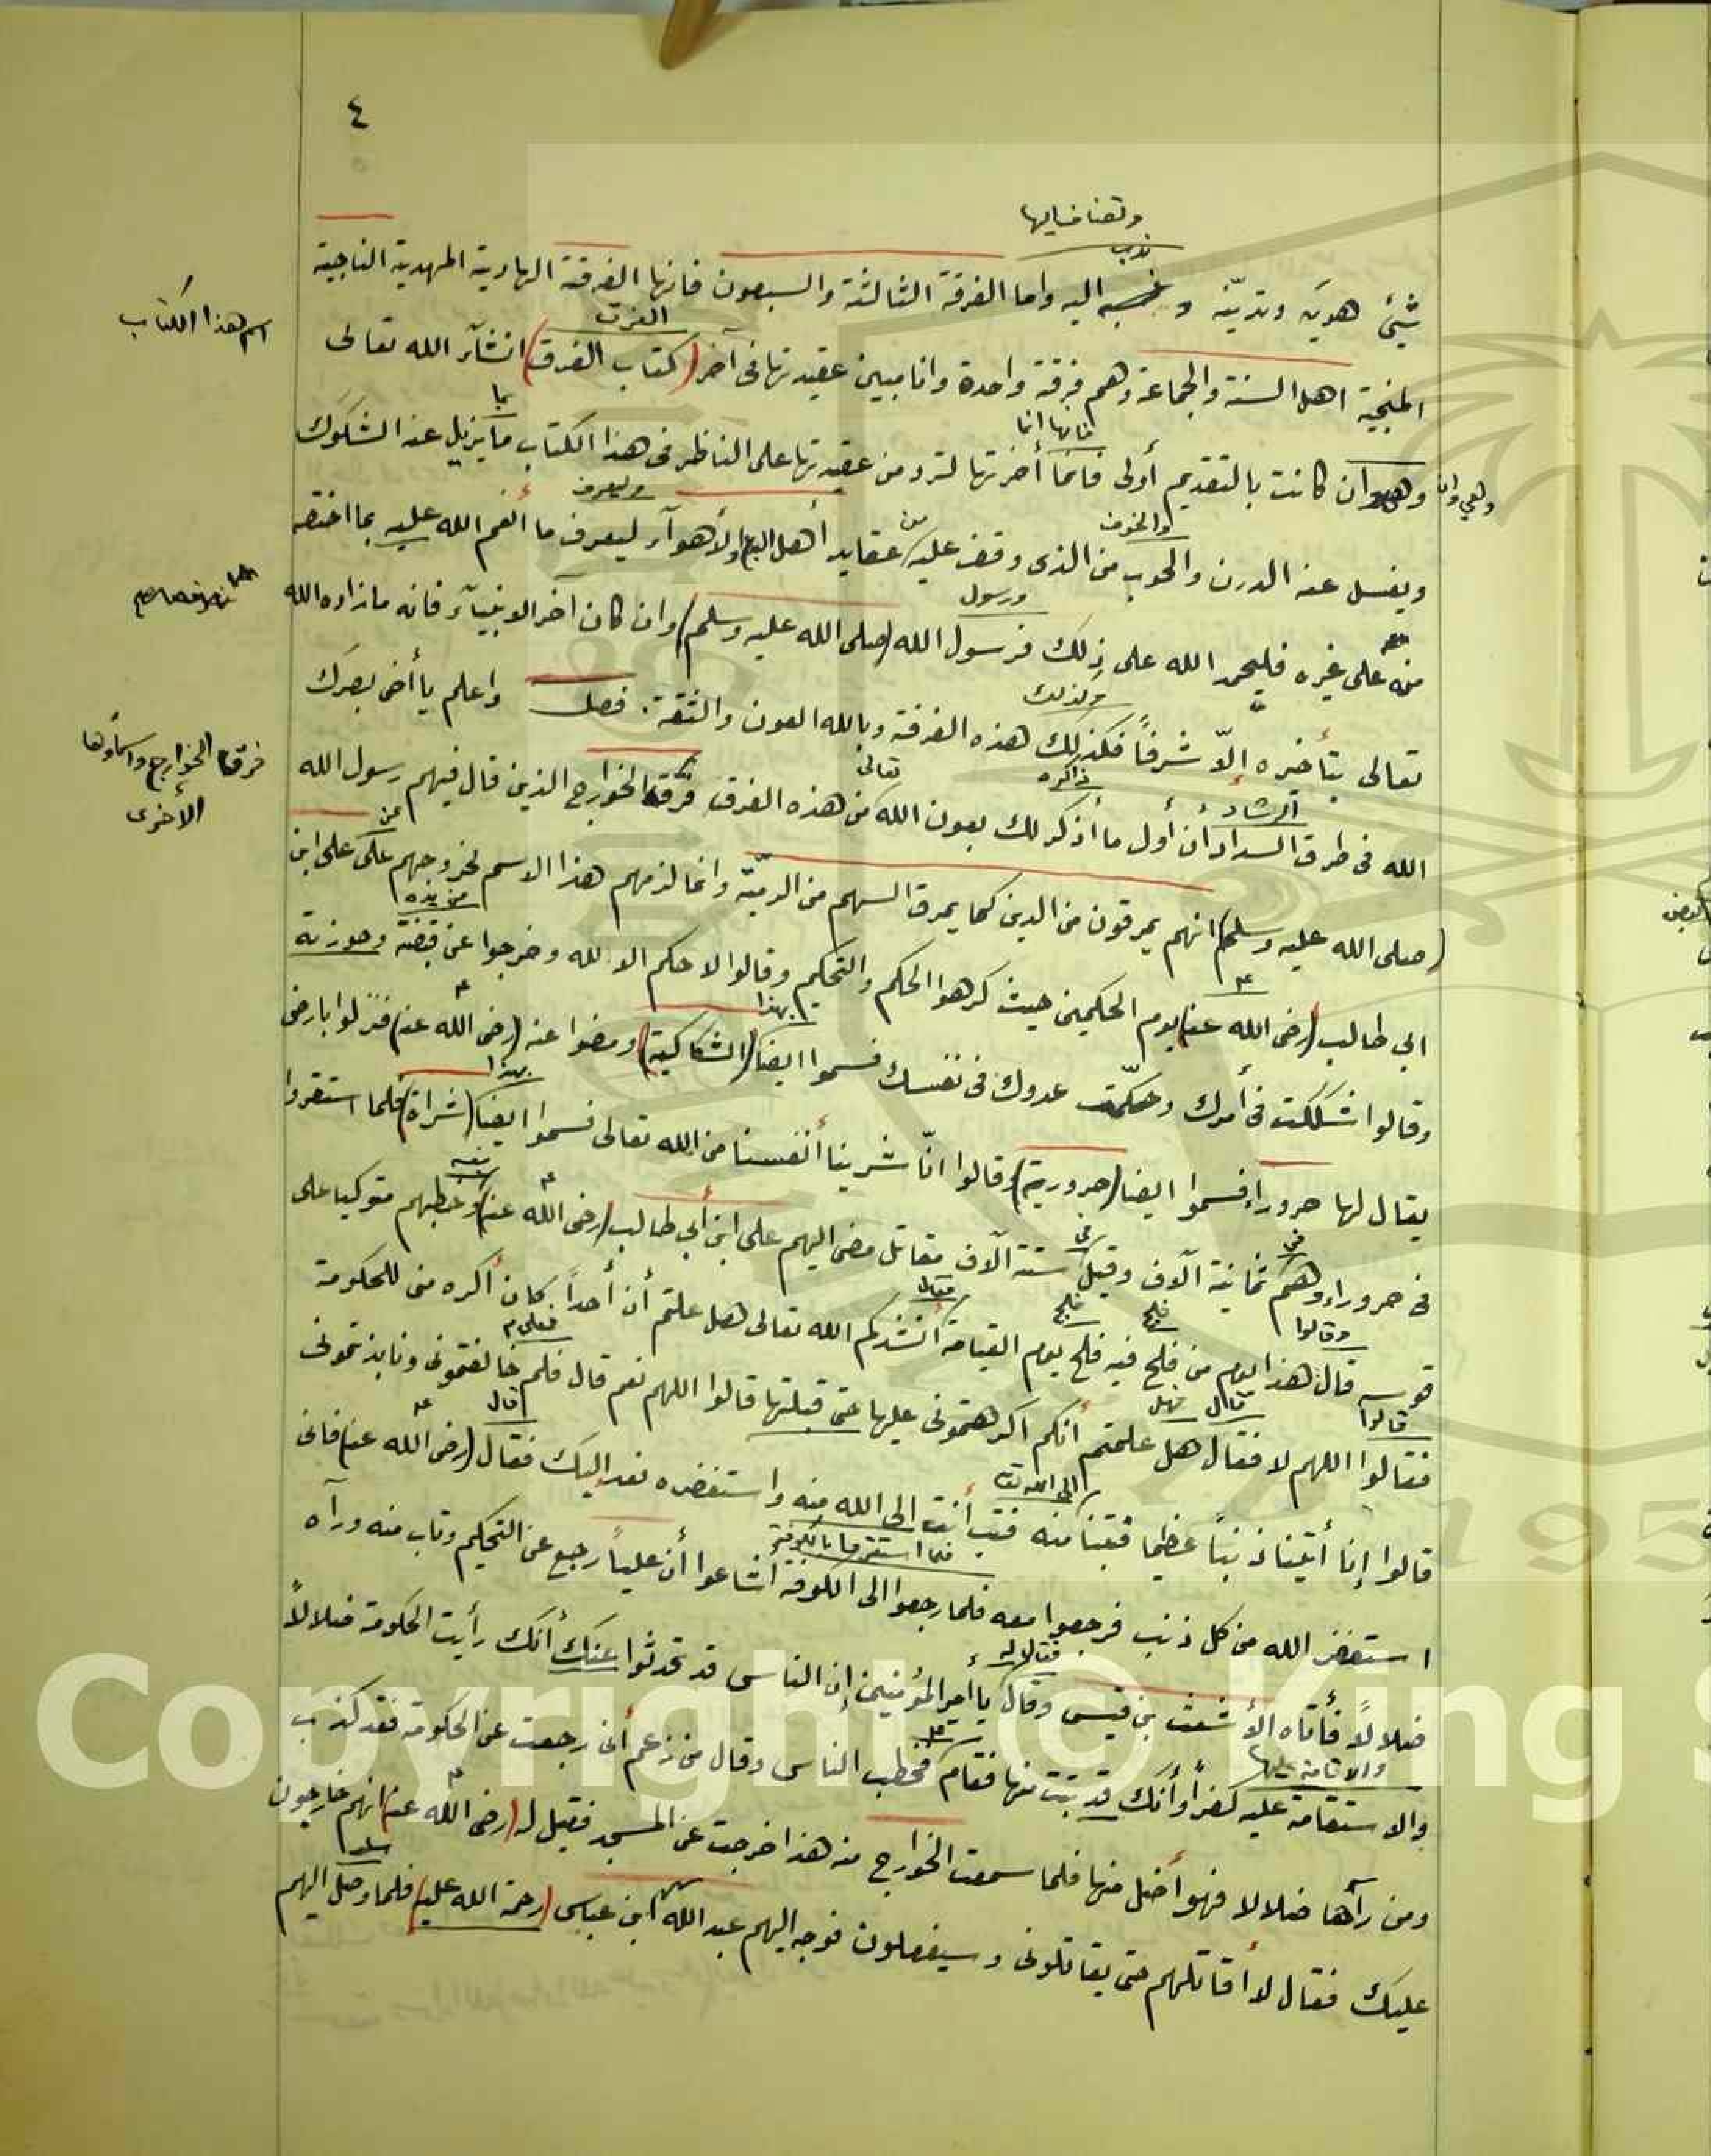 ٤
شيئ هويه وتدينه و اليه واما الفرقة الثالثة والسبعون فانها الفرقة الهادية المهدية الناجية
اسم هذا الكتاب
الفرق
المنجية اهل السنة والجماعة وهم فرقة واحدة وانا مبين عقيدتها فى آخر (كتاب الفرق) انشآء الله تعالى
بما
فانها انا
وهي وان
كانت بالتقديم أولى فانما أخرتها لترد من عقيدتها على الناظر فى هذا الكتاب ما يزيل عنه الشكوك
وليعرف
من
ويغسل عنه الدرن والحوب من الذى وقف عليه عقايد أهل البدع والأهوآء ليعرف ما أنعم الله عليه بما اختصه
ورسول
منه على غيره فليحمد الله على ذلك فرسول الله (صلى الله عليه وسلم) وان كان آخر الانبيآء فانه ما زاده الله
وكذلك
تعالى بتأخيره إلاّ شرفاً فكذلك هذه الفرقة وبالله العون والثقة. فصل واعلم يا أخى بصرك
فرق الخوارج واسماؤها
الأخرى
الرشاد
ذاكره
تعالى
الله فى طرق السداد أن أول ما أذكر لك بعون الله من هذه الفرق فرقة الخوارج الذين قال فيهم رسول الله
عن
(صلى الله عليه وسلم) انهم يمرقون من الدين كما يمرق السهم من الرميّة وانما لزمهم هذا الاسم لخروجهم على على ابن
من يده
ابي طالب (رضى الله عنه) يوم الحكمين حيث كرهوا الحكم والتحكيم وقالوا لا حكم الا لله وخرجوا عن قبضته وحوزته
بهذا
وقالوا شككت فى أمرك وحكّمت عدوك فى نفسك فسموا ايضا (الشكاكية) ومضوا عنه (رضى الله عنه) فنزلوا بارض
بهذا
يقال لها حروراء فسموا ايضا (حرورية) وقالوا انّا شرينا أنفسنا من الله تعالى فسموا ايضا (شراة) فلما استقروا
فى حروراء وهم ثمانية آلاف وقيل ستة آلاف مقاتل مضى اليهم على ابن أبي طالب (رضى الله عنه) وخطبهم متوكيا على
وقالوا
فلج
فلج
فقال
قوسه قال هذا يوم من فلج فيه فلج يوم القيامة أنشدكم الله تعالى هل علمتم أن أحداً كان أكره منى للحكومة
قالوا
قال فهل
فعلام
فقالوا اللهم لا فقال هل علمتم أنكم اكرهتمونى عليها حتى قبلتها قالوا اللهم نعم قال فلم خالفتمونى ونابذتمونى
الى الله تعالى
قال
قالوا إنا أتينا ذنباً عظيما فتبنا منه فتب أنت الى الله منه واستغفره نعد اليك فقال (رضى الله عنه) فانى
فلما استقروا بالكوفة
استغفر الله من كل ذنب فرجعوا معه فلما رجعوا الى الكوفة أشاعوا أن علياً رجع عن التحكيم وتاب منه ورآه
فقال له
ضلالاً فأتاه الأشعث بن قيس وقال يا أمير المؤمنين إن الناس قد تحدثوا عنك أنك رأيت الحكومة ضلالاً
والاقامة عليها
والاستقامة عليه كفراً وأنك قد تبت منها فقام فخطب الناس وقال من زعم أنى رجعت عن الحكومة فقد كذب
ومن رآها ضلالا فهو أضل منها فلما سمعت الخوارج منه هذا خرجت عن المسجد فقيل له (رضى الله عنه) انهم خارجون
عليك فقال لا أقاتلهم حتى يقاتلونى وسيفعلون فوجه اليهم عبد الله ابن عباس (رحمة الله عليه) فلما وصل اليهم
Copyright © King S
195